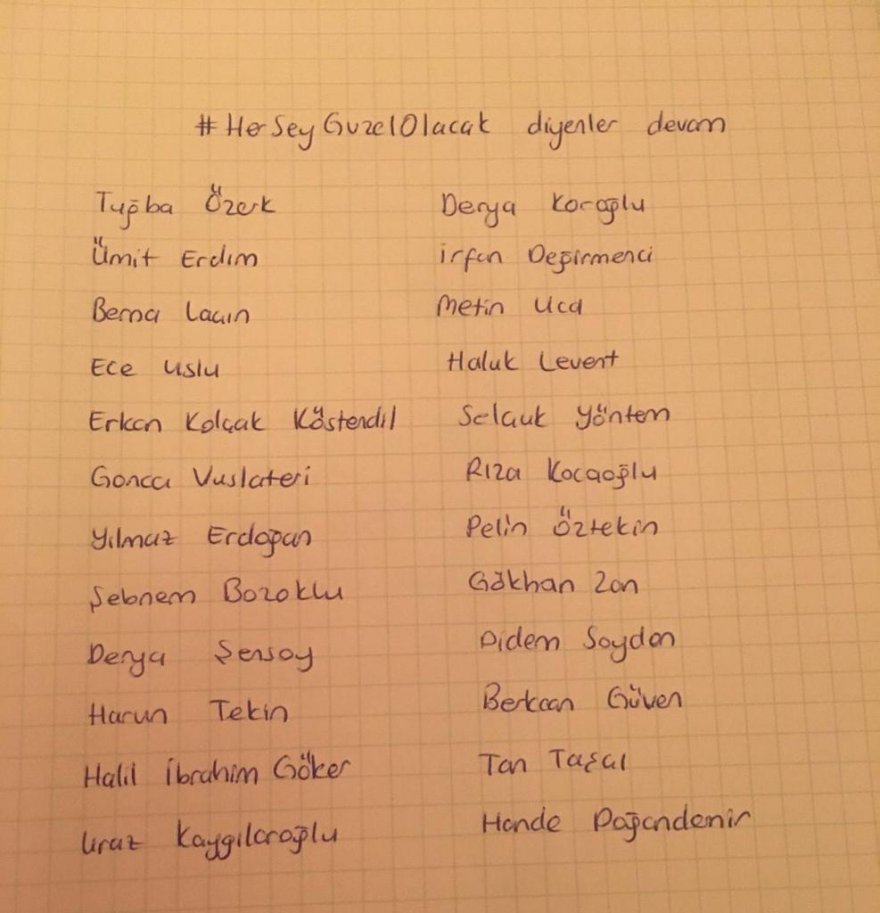 #HerSeyGuzelOlacak diyenler devam
Tuğba Özerk
Ümit Erdim
Berna Laçin
Ece Uslu
Erkan Kolçak Köstendil
Gonca Vuslateri
Yılmaz Erdoğan
Şebnem Bozoklu
Derya Şensoy
Harun Tekin
Halil İbrahim Göker
Uraz Kaygılaroğlu
Derya Köroğlu
İrfan Değirmenci
Metin Uca
Haluk Levent
Selçuk Yöntem
Rıza Kocaoğlu
Pelin Öztekin
Gökhan Zan
Didem Soydan
Berkcan Güven
Tan Taşçı
Hande Doğandemir